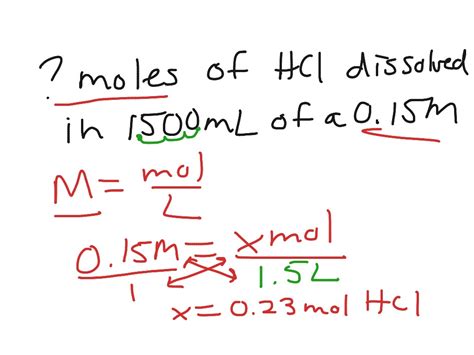 ? moles of HCl dissolved
in 1500mL of a 0.15M
M = mol/L
0.15M/1 = x mol/1.5L
x = 0.23 mol HCl